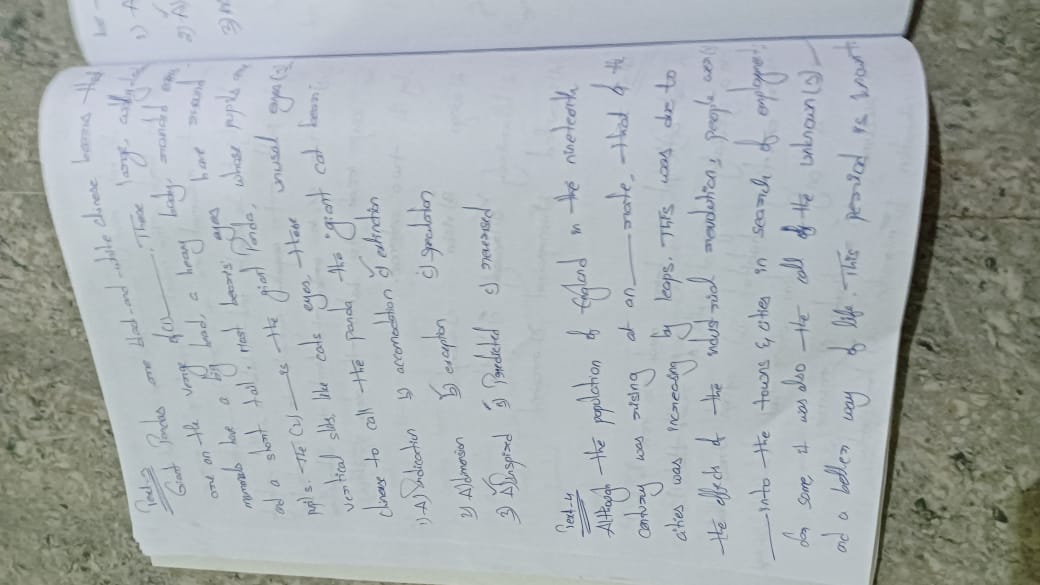 Text-3
Giant Pandas are black-and-white chinese bears that
are on the verge of (1)____. These large cuddly-
mammals have a big head, a heavy body, rounded ears
and a short tail. Most bears' eyes have round
pupils. The (2)____ is the giant Panda, whose pupils are
vertical slits, like cats eyes. these unusual eyes (3)
chinese to call the panda the "giant cat bear:
1) A) Indication b) accomodation c) extinction
2) A) dimension b) exception c) graduation
3) A) Inspired b) Predicted c) reversed
Text-4
Although the population of England in the nineteenth
century was rising at an ____ rate, that of the
cities was increasing by leaps. This was due to
the effect of the industrial revolution; people were (
____ into the towns & cities in search of employment;
for some it was also the call of the unknown (3)
and a better way of life. This period is known
1) A
2) A)
3)